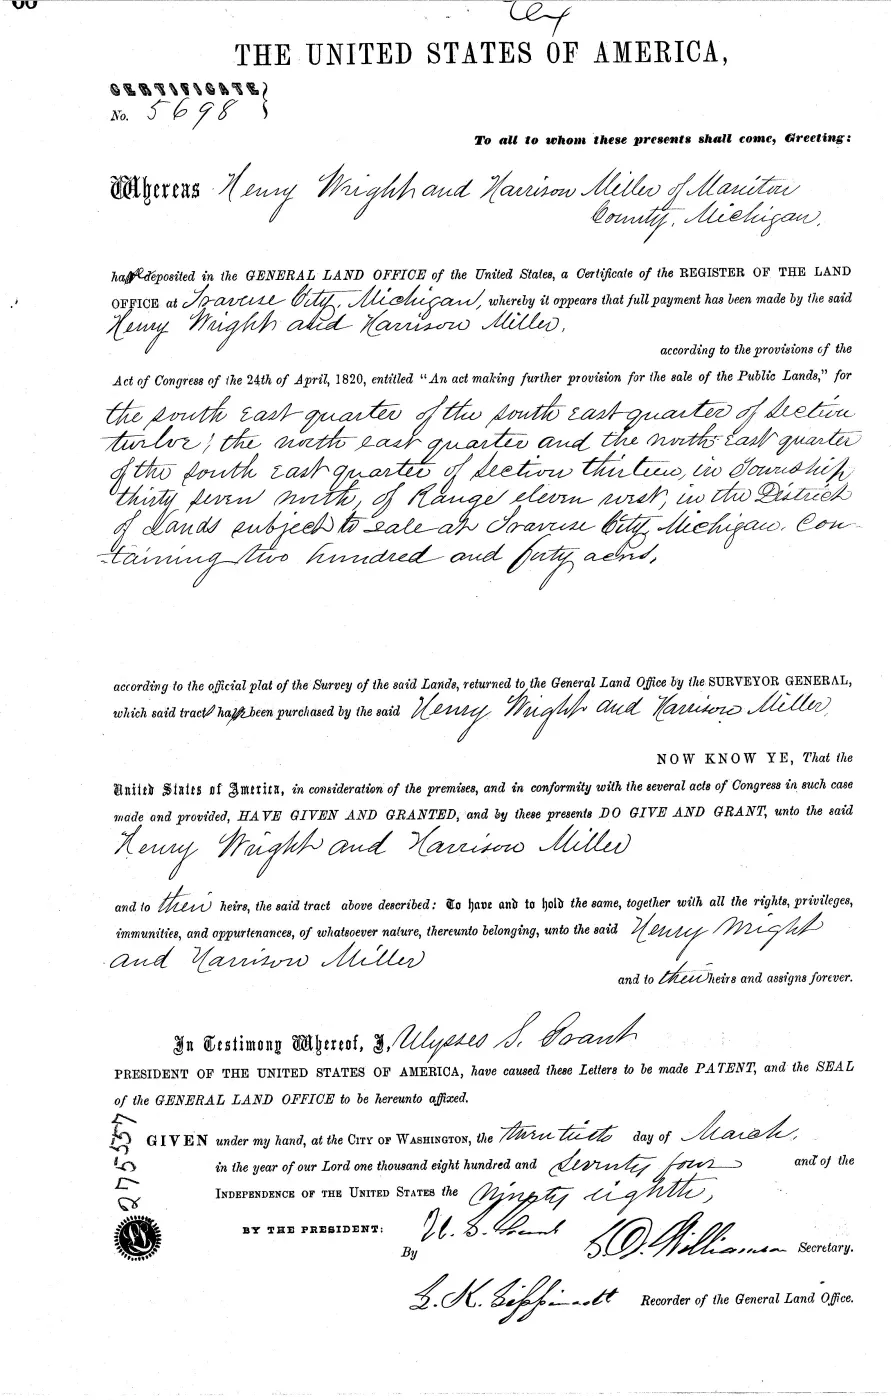 THE UNITED STATES OF AMERICA,
CERTIFICATE
No. 5698
To all to whom these presents shall come, Greeting:
Whereas Henry Wright and Harrison Miller of Manitou
County, Michigan,
have deposited in the GENERAL LAND OFFICE of the United States, a Certificate of the REGISTER OF THE LAND
OFFICE at Traverse City, Michigan, whereby it appears that full payment has been made by the said
Henry Wright and Harrison Miller,
according to the provisions of the
Act of Congress of the 24th of April, 1820, entitled “An act making further provision for the sale of the Public Lands,” for
the south East quarter of the south East quarter of Section
twelve; the north east quarter and the north East quarter
of the south East quarter of Section thirteen, in Township
thirty seven north, of Range eleven west, in the District
of Lands subject to sale at Traverse City, Michigan. Con-
-taining two hundred and forty acres,
according to the official plat of the Survey of the said Lands, returned to the General Land Office by the SURVEYOR GENERAL,
which said tracts have been purchased by the said Henry Wright and Harrison Miller,
NOW KNOW YE, That the
United States of America, in consideration of the premises, and in conformity with the several acts of Congress in such case
made and provided, HAVE GIVEN AND GRANTED, and by these presents DO GIVE AND GRANT, unto the said
Henry Wright and Harrison Miller
and to their heirs, the said tract above described: To have and to hold the same, together with all the rights, privileges,
immunities, and appurtenances, of whatsoever nature, thereunto belonging, unto the said Henry Wright
and Harrison Miller
and to their heirs and assigns forever.
In Testimony Whereof, I, Ulysses S. Grant
PRESIDENT OF THE UNITED STATES OF AMERICA, have caused these Letters to be made PATENT, and the SEAL
of the GENERAL LAND OFFICE to be hereunto affixed.
GIVEN under my hand, at the CITY OF WASHINGTON, the twentieth day of March,
in the year of our Lord one thousand eight hundred and seventy four and of the
INDEPENDENCE OF THE UNITED STATES the ninety eighth,
BY THE PRESIDENT: U. S. Grant
By S. D. Williamson Secretary.
L. K. Lippincott Recorder of the General Land Office.
275557